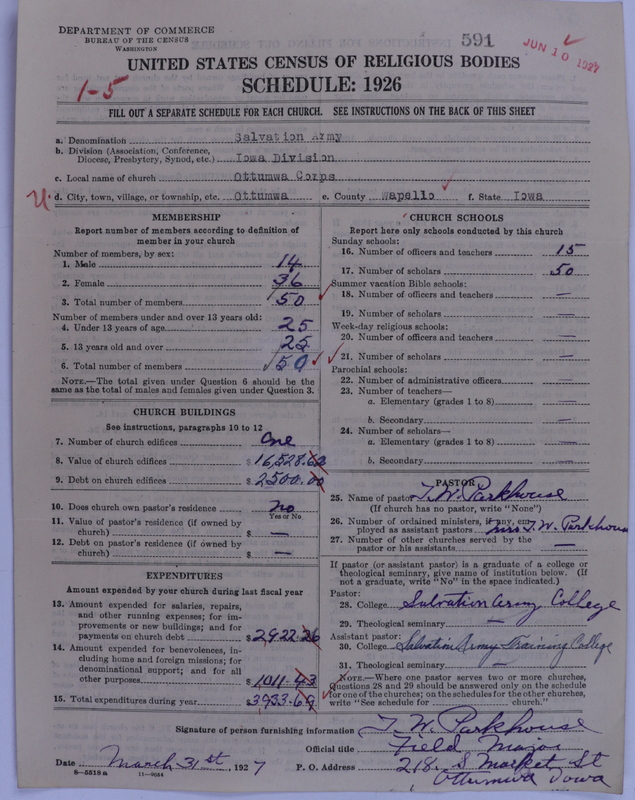 DEPARTMENT OF COMMERCE
BUREAU OF THE CENSUS
WASHINGTON
591
JUN 10 1927
UNITED STATES CENSUS OF RELIGIOUS BODIES
1-5
SCHEDULE: 1926
FILL OUT A SEPARATE SCHEDULE FOR EACH CHURCH. SEE INSTRUCTIONS ON THE BACK OF THIS SHEET
a. Denomination Salvation Army
b. Division (Association, Conference,
Diocese, Presbytery, Synod, etc.) Iowa Division
c. Local name of church Ottumwa Corps
U. d. City, town, village, or township, etc. Ottumwa e. County Wapello f. State Iowa
MEMBERSHIP
Report number of members according to definition of
member in your church
Number of members, by sex:
1. Male 14
2. Female 36
3. Total number of members 50
Number of members under and over 13 years old:
4. Under 13 years of age 25
5. 13 years old and over 25
6. Total number of members 50
NOTE.—The total given under Question 6 should be
same as the total of males and females given under Question 3.
CHURCH BUILDINGS
See instructions, paragraphs 10 to 12
7. Number of church edifices One
8. Value of church edifices $16,528.62
9. Debt on church edifices $2500.00
10. Does church own pastor's residence No
Yes or No
11. Value of pastor's residence (if owned by
church) $ —
12. Debt on pastor's residence (if owned by
church) $ —
EXPENDITURES
Amount expended by your church during last fiscal year
13. Amount expended for salaries, repairs,
and other running expenses; for im-
provements or new buildings; and for
payments on church debt $2922.26
14. Amount expended for benevolences, in-
cluding home and foreign missions; for
denominational support; and for all
other purposes $1011.43
15. Total expenditures during year $3933.69
CHURCH SCHOOLS
Report here only schools conducted by this church
Sunday schools:
16. Number of officers and teachers 15
17. Number of scholars 50
Summer vacation Bible schools:
18. Number of officers and teachers —
19. Number of scholars —
Week-day religious schools:
20. Number of officers and teachers —
21. Number of scholars —
Parochial schools:
22. Number of administrative officers —
23. Number of teachers—
a. Elementary (grades 1 to 8) —
b. Secondary —
24. Number of scholars—
a. Elementary (grades 1 to 8) —
b. Secondary —
PASTOR
25. Name of pastor T. W. Parkhouse
(If church has no pastor, write "None")
26. Number of ordained ministers, if any, em-
ployed as assistant pastors Mrs T. W. Parkhouse
27. Number of other churches served by the
pastor or his assistants —
If pastor (or assistant pastor) is a graduate of a college or
theological seminary, give name of institution below. (If
not a graduate, write "No" in the space indicated.)
Pastor:
28. College Salvation Army College
29. Theological seminary —
Assistant pastor:
30. College Salvation Army Training College
31. Theological seminary —
NOTE.—Where one pastor serves two or more churches,
Questions 28 and 29 should be answered only on the schedule
for one of the churches; on the schedules for the other churches,
write "See schedule for church."
Signature of person furnishing information T. W. Parkhouse
Official title Field Major
Date March 31st, 1927 P. O. Address 218. S Market St
8—5518a 11—9064 Ottumwa Iowa